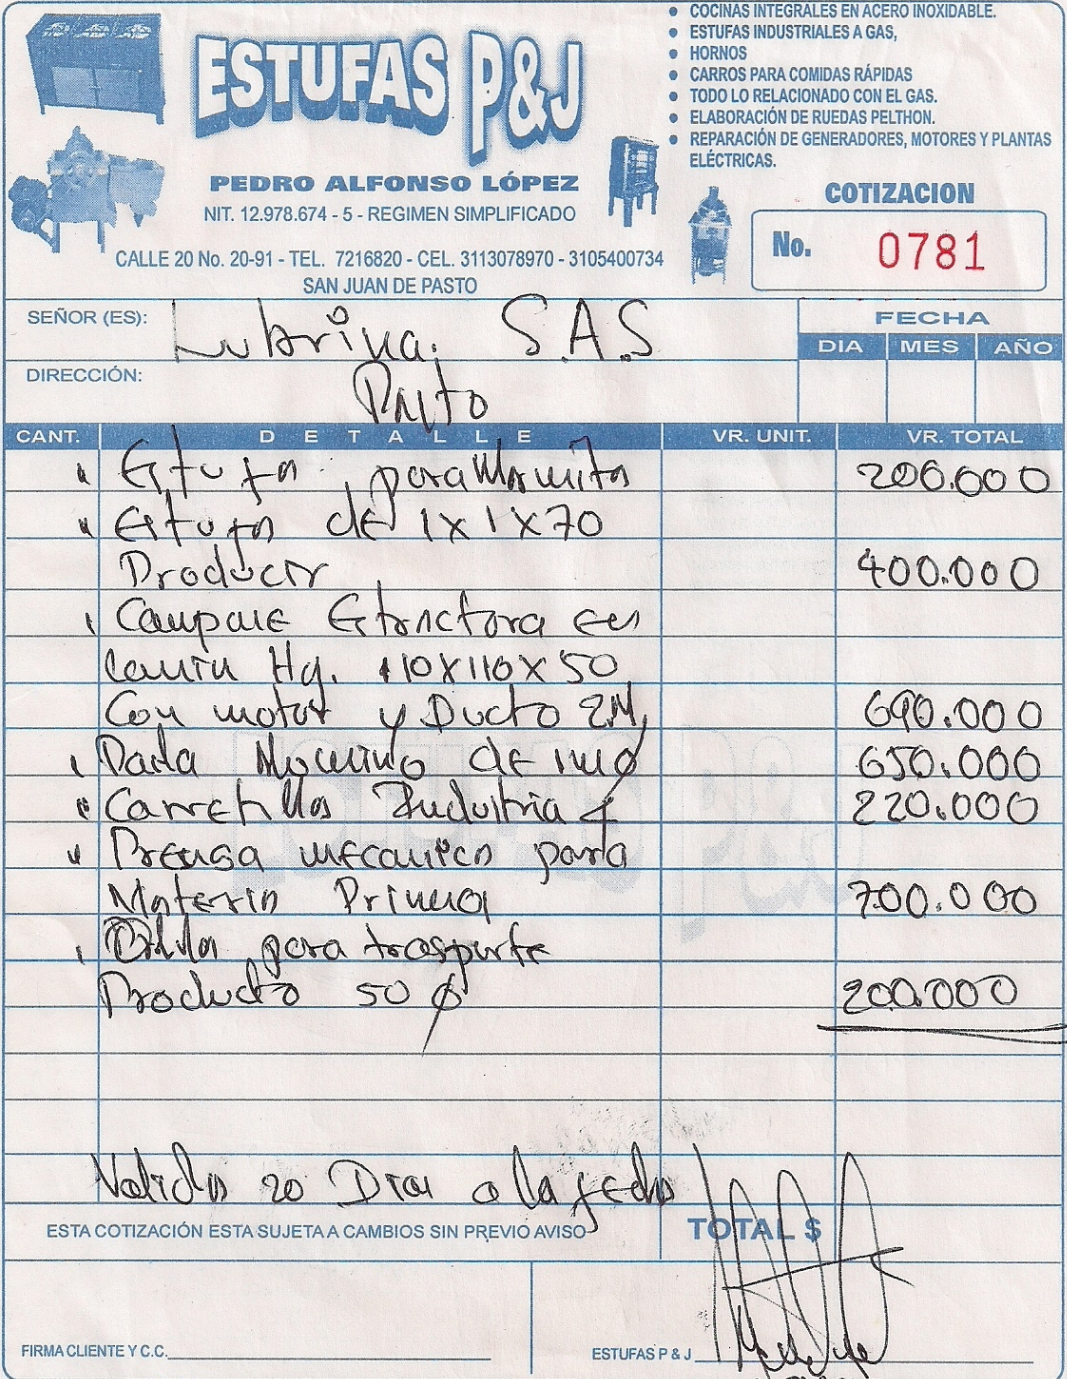 ESTUFAS P&J
PEDRO ALFONSO LÓPEZ
NIT. 12.978.674 - 5 - REGIMEN SIMPLIFICADO
CALLE 20 No. 20-91 - TEL. 7216820 - CEL. 3113078970 - 3105400734
SAN JUAN DE PASTO
• COCINAS INTEGRALES EN ACERO INOXIDABLE.
• ESTUFAS INDUSTRIALES A GAS,
• HORNOS
• CARROS PARA COMIDAS RÁPIDAS
• TODO LO RELACIONADO CON EL GAS.
• ELABORACIÓN DE RUEDAS PELTHON.
• REPARACIÓN DE GENERADORES, MOTORES Y PLANTAS
ELÉCTRICAS.
COTIZACION
No. 0781
SEÑOR (ES): S.A.S
DIRECCIÓN: Pasto
FECHA
DIA MES AÑO
CANT. DETALLE VR. UNIT. VR. TOTAL
Estufa para Marmita 200.000
Estufa de 1x1x70
Producir 400.000
Extractora en
Hg. 110x110x50
Con motor y Ducto 2M, 690.000
de 650.000
Industria 220.000
Prensa mecanica para
Materia Prima 700.000
para trasporte
Producto 50 200.000
Valida 20 Dias a la fecha
ESTA COTIZACIÓN ESTA SUJETA A CAMBIOS SIN PREVIO AVISO
TOTAL $
FIRMA CLIENTE Y C.C.
ESTUFAS P & J